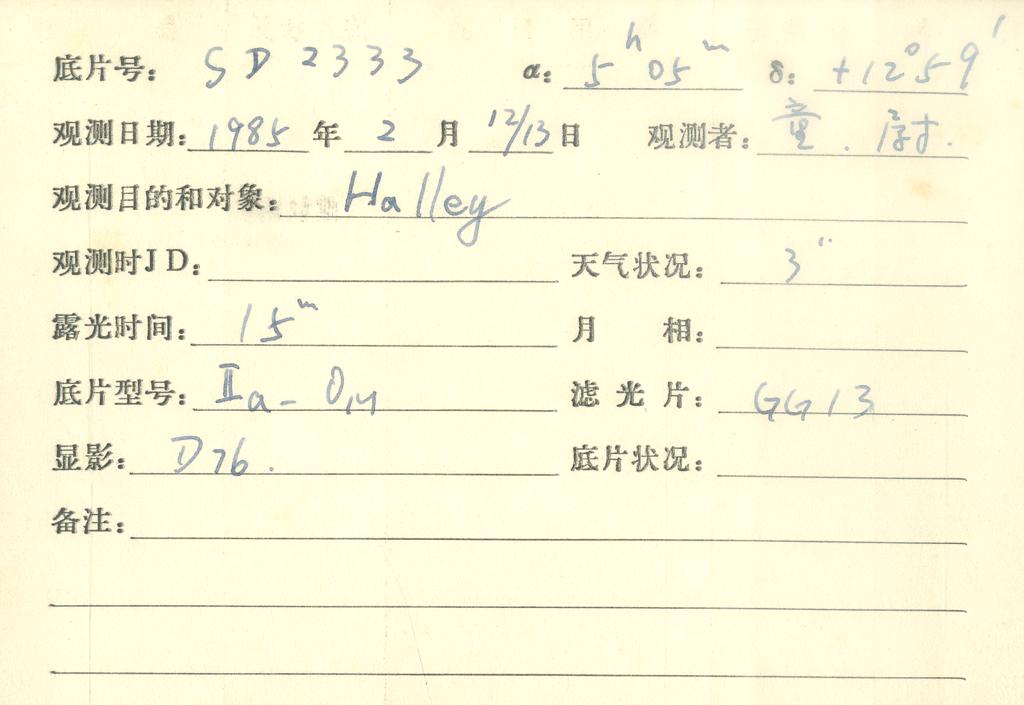 底片号： SD 2333 α： 5ʰ05ᵐ δ： +12°59′
观测日期： 1985 年 2 月 12/13 日 观测者： 童.
观测目的和对象： Halley
观测时JD： 天气状况： 3″
露光时间： 15ᵐ 月 相：
底片型号： IIa-O 滤光片： GG13
显影： D76. 底片状况：
备注：